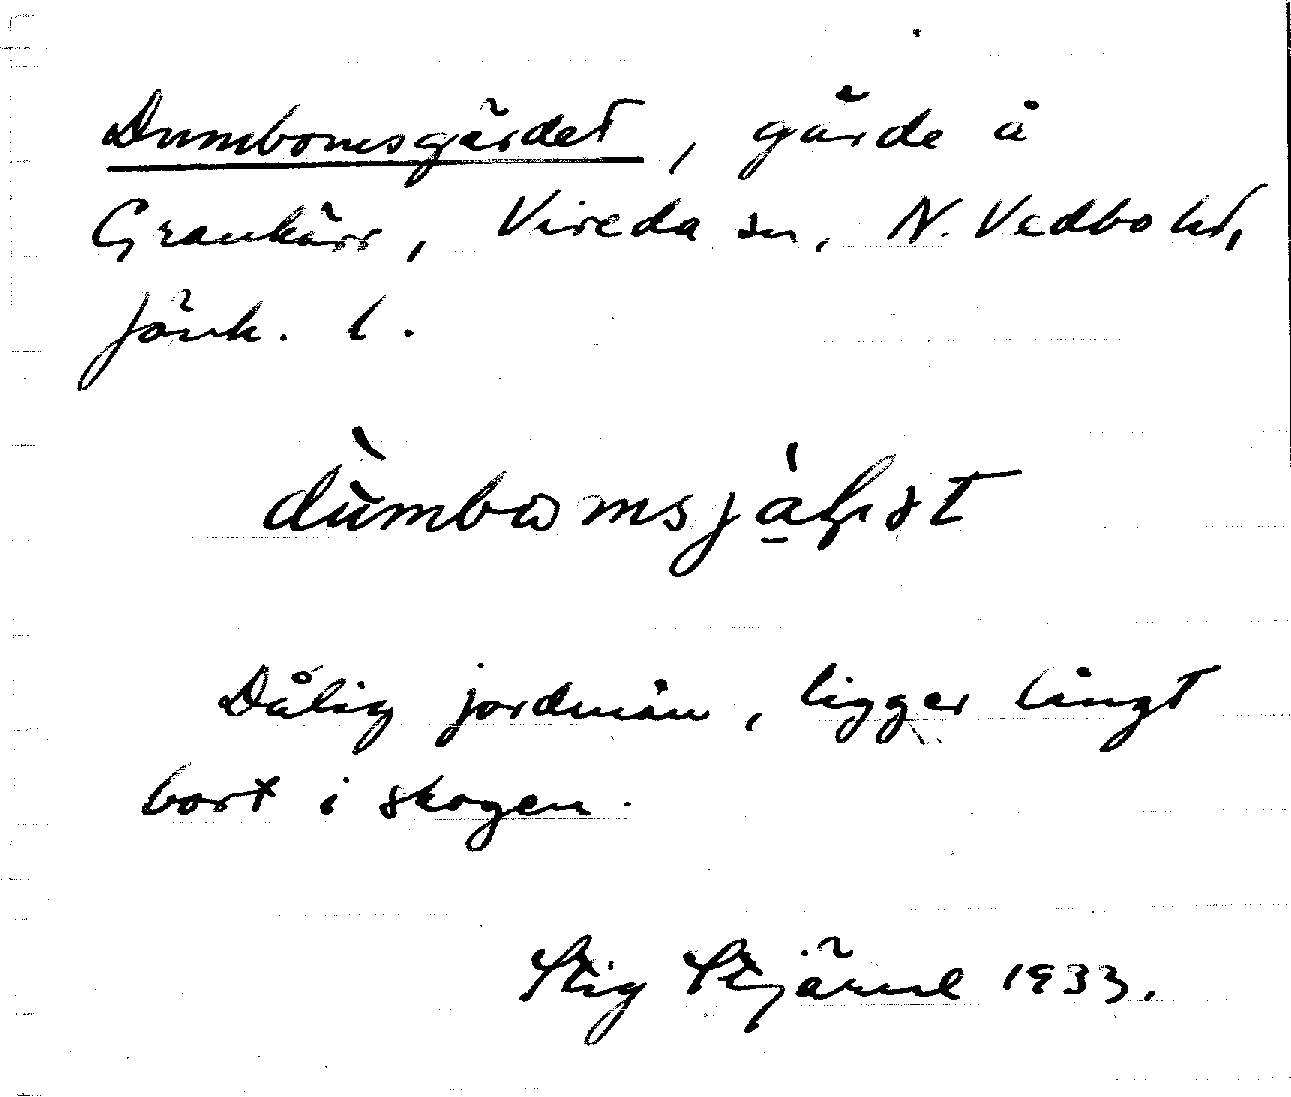 Dumbomsgärdet, gärde å
Grankärr, Vireda sn, N. Vedbo hd,
Jönk. l.
Dålig jordmån, ligger långt
bort i skogen.
Stig Stjärne 1933.